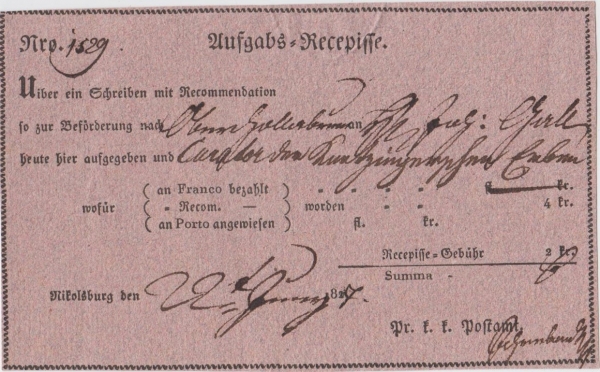 Nro. 1529.
Aufgabs-Recepisse.
Uiber ein Schreiben mit Recommendation
so zur Beförderung nach Oberhollabrunn an Joh:
heute hier aufgegeben und Curator der Erben
( an Franco bezahlt ) " " " " fl. — kr.
wofür ( " Recom. — ) worden " " 4 kr.
( an Porto angewiesen ) fl. kr.
Recepisse-Gebühr 2 kr.
Summa -
Nikolsburg den 22t 827.
Pr. k. k. Postamt